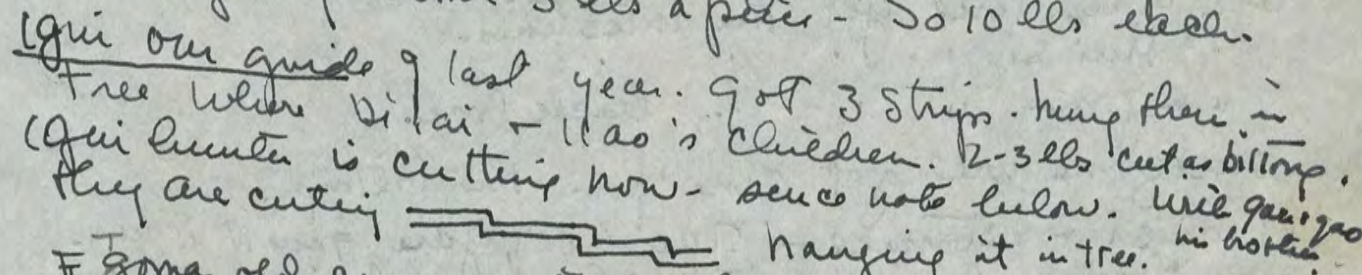 3 lbs a piece - So 10 lbs each.
(Gui our guide of last year. got 3 strips. hung there in
Tree where Di!ai + //ao's children. 2-3 lbs cut as biltong.
(Gui hunter is cutting now - see note below. with
They are cutting hanging it in tree. his brother.